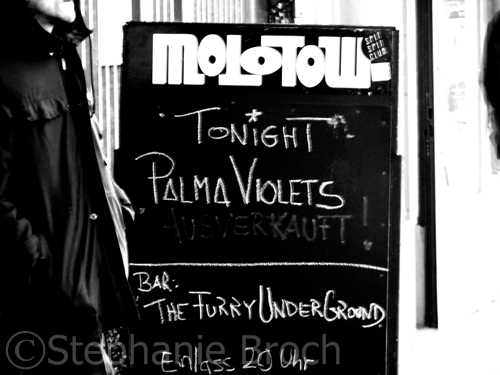 MOLOTOW
SPIT
SPIT
CLUB
TONIGHT
PALMA VIOLETS
AUSVERKAUFT!
BAR:
THE FURRY UNDERGROUND
Einlass 20 Uhr
©Stephanie Broch